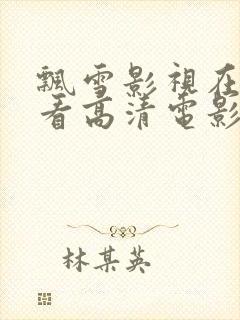 飄雪影視在
看高清電影
林某英